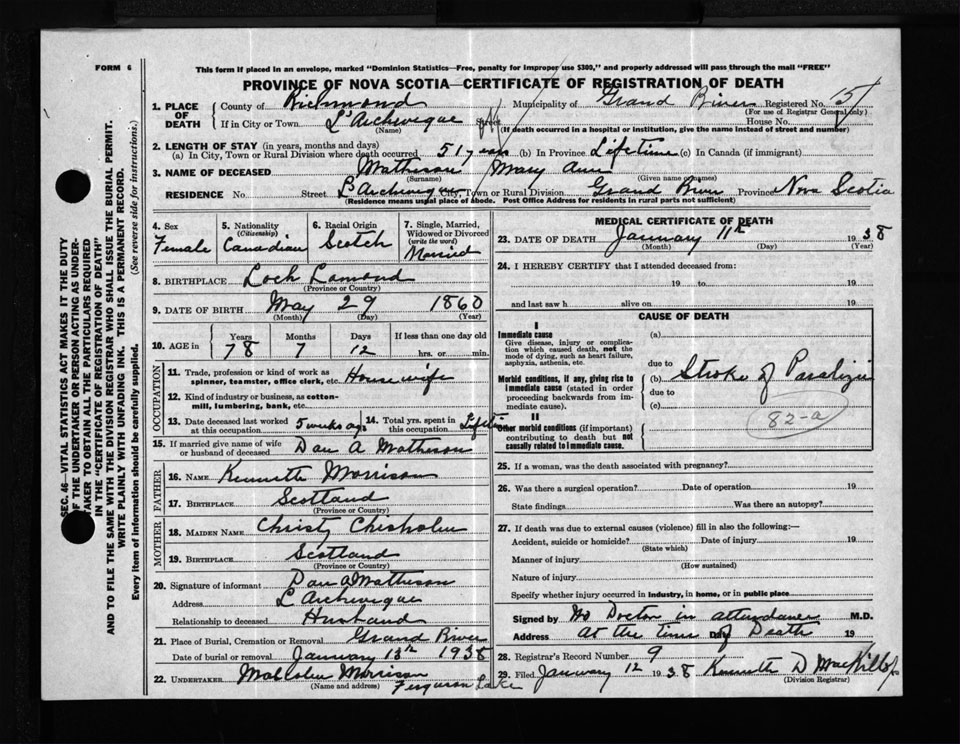 FORM 6
This form if placed in an envelope, marked "Dominion Statistics—Free, penalty for improper use $300," and properly addressed will pass through the mail "FREE"
PROVINCE OF NOVA SCOTIA—CERTIFICATE OF REGISTRATION OF DEATH
1. PLACE OF DEATH
County of Richmond Municipality of Grand River Registered No.
(For use of Registrar General only)
If in City or Town L'Archeveque Street House No.
(Name) (If death occurred in a hospital or institution, give the name instead of street and number)
2. LENGTH OF STAY (in years, months and days)
(a) In City, Town or Rural Division where death occurred 51 years (b) In Province Lifetime (c) In Canada (if immigrant)
3. NAME OF DECEASED Matheson Mary Ann
(Surname) (Given name or names)
RESIDENCE No. Street L'Archeveque City, Town or Rural Division Grand River Province Nova Scotia
(Residence means usual place of abode. Post Office Address for residents in rural parts not sufficient)
4. Sex Female
5. Nationality (Citizenship) Canadian
6. Racial Origin Scotch
7. Single, Married, Widowed or Divorced (write the word) Married
8. BIRTHPLACE Loch Lomond
(Province or Country)
9. DATE OF BIRTH May 29 1860
(Month) (Day) (Year)
10. AGE in Years Months Days If less than one day old
78 7 12 hrs. or min.
OCCUPATION
11. Trade, profession or kind of work as spinner, teamster, office clerk, etc. Housewife
12. Kind of industry or business, as cotton-mill, lumbering, bank, etc.
13. Date deceased last worked at this occupation 5 weeks ago
14. Total yrs. spent in this occupation
15. If married give name of wife or husband of deceased Dan A Matheson
FATHER
16. NAME Kenneth Morrison
17. BIRTHPLACE Scotland
(Province or Country)
MOTHER
18. MAIDEN NAME Christy Chisholm
19. BIRTHPLACE Scotland
(Province or Country)
20. Signature of informant Dan A Matheson
Address L'Archeveque
Relationship to deceased Husband
21. Place of Burial, Cremation or Removal Grand River
Date of burial or removal January 13th 1938
22. UNDERTAKER Malcolm Morrison
(Name and address) Ferguson Lake
MEDICAL CERTIFICATE OF DEATH
23. DATE OF DEATH January 11th 1938
(Month) (Day) (Year)
24. I HEREBY CERTIFY that I attended deceased from:
19 to 19
and last saw h alive on 19
CAUSE OF DEATH
I
Immediate cause
Give disease, injury or complication which caused death, not the mode of dying, such as heart failure, asphyxia, asthenia, etc.
Morbid conditions, if any, giving rise to immediate cause (stated in order proceeding backwards from immediate cause).
II
Other morbid conditions (if important) contributing to death but not causally related to immediate cause.
(a)
due to
(b) Stroke of
due to
(c)
82-a
25. If a woman, was the death associated with pregnancy?
26. Was there a surgical operation? Date of operation 19
State findings Was there an autopsy?
27. If death was due to external causes (violence) fill in also the following:—
Accident, suicide or homicide? Date of injury 19
(State which)
Manner of injury
(How sustained)
Nature of injury
Specify whether injury occurred in industry, in home, or in public place
Signed by No Doctor in attendance M.D.
Address at the time of Death 19
28. Registrar's Record Number 9
29. Filed January 12 1938 Kenneth D MacKillop
(Division Registrar)
SEC. 46—VITAL STATISTICS ACT MAKES IT THE DUTY
OF THE UNDERTAKER OR PERSON ACTING AS UNDER-
TAKER TO OBTAIN ALL THE PARTICULARS REQUIRED
IN THE "CERTIFICATE OF REGISTRATION OF DEATH"
AND TO FILE THE SAME WITH THE DIVISION REGISTRAR WHO SHALL ISSUE THE BURIAL PERMIT.
WRITE PLAINLY WITH UNFADING INK. THIS IS A PERMANENT RECORD.
Every item of information should be carefully supplied. (See reverse side for instructions.)